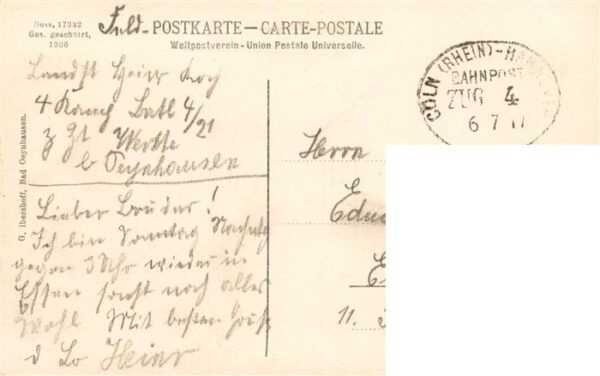 Dess. 17332
Ges. geschützt,
1906
Feld-POSTKARTE — CARTE-POSTALE
Weltpostverein - Union Postale Universelle.
CÖLN (RHEIN)-HANNOVER
BAHNPOST
ZUG 4
6 7 17
G. Ibershoff, Bad Oeynhausen.
Landst Heinr Koch
4 Komp Batl 4/21
z Zt Werste
b Oeynhausen
Lieber Bruder!
Ich bin Sonntag Nachmtg
gegen 3 Uhr wieder in
Essen sonst noch alles
Wohl Mit besten Gruß
d Br Heinr
Herrn
Edu
E
11.